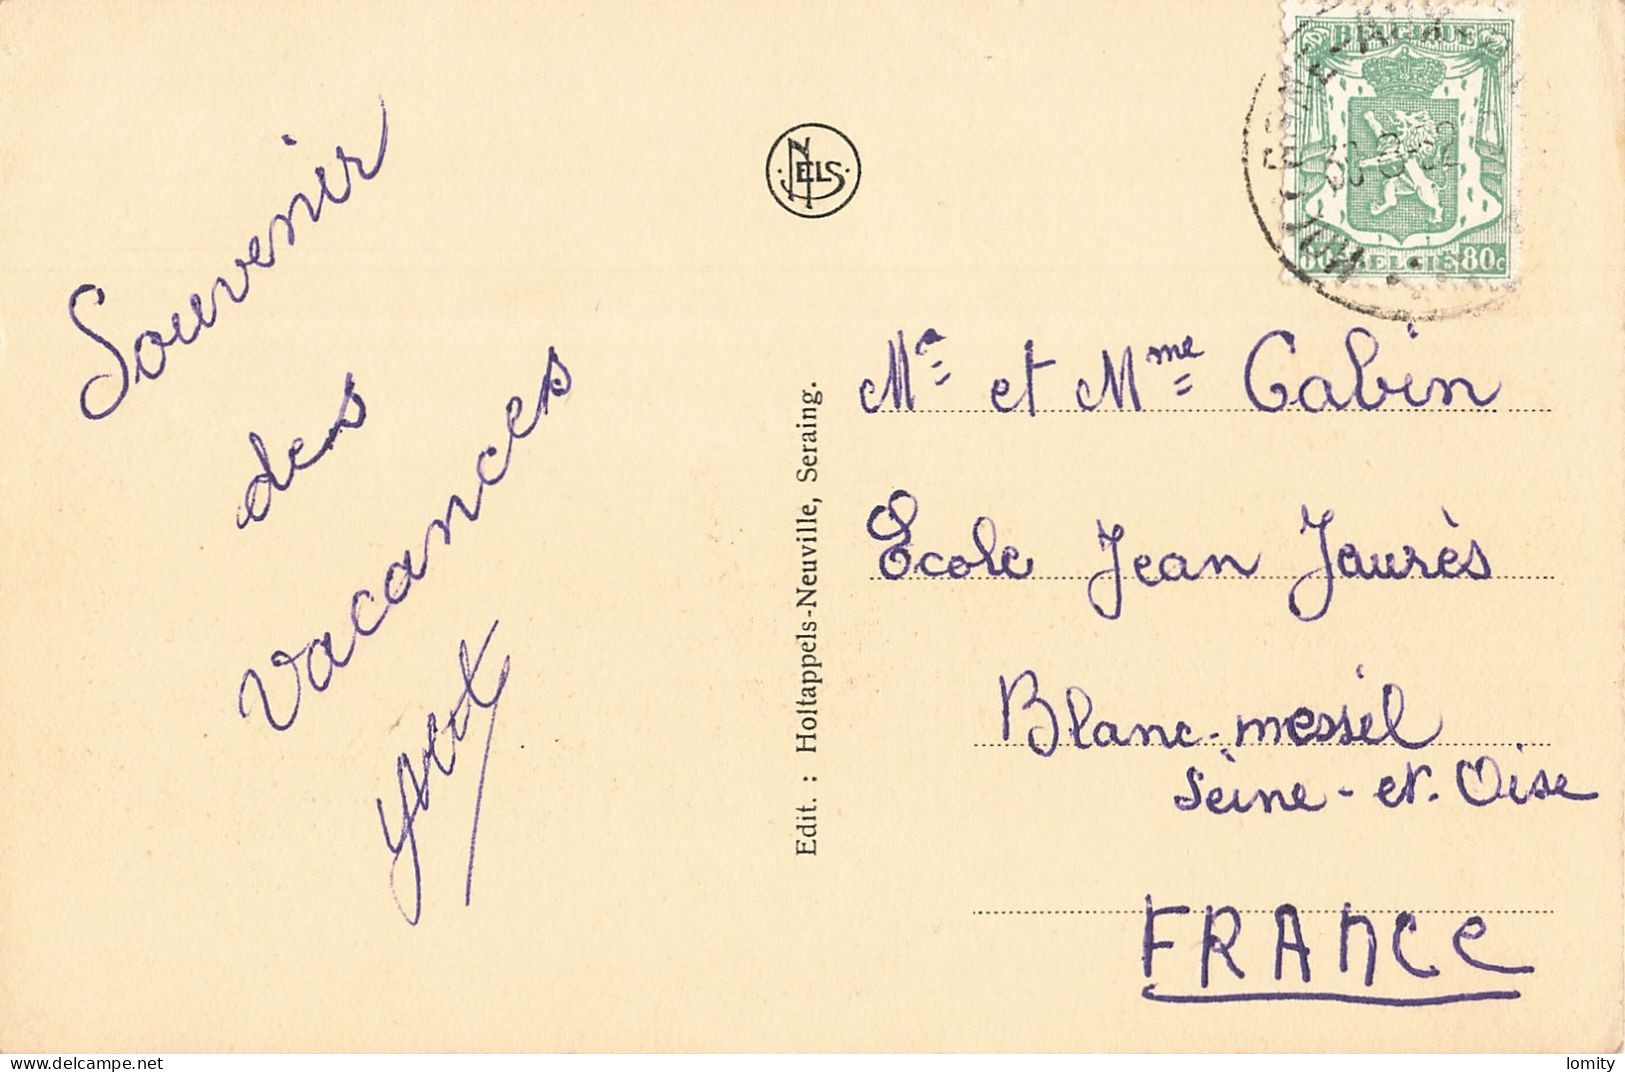 Souvenir
des
vacances
Yvet
NELS
Edit. : Holtappels-Neuville, Seraing.
BELGIQUE
BELGIE 80c
Mr et Mme Gabin
École Jean Jaurès
Blanc-messil
Seine-et-Oise
FRANCE
www.delcampe.net
lomity